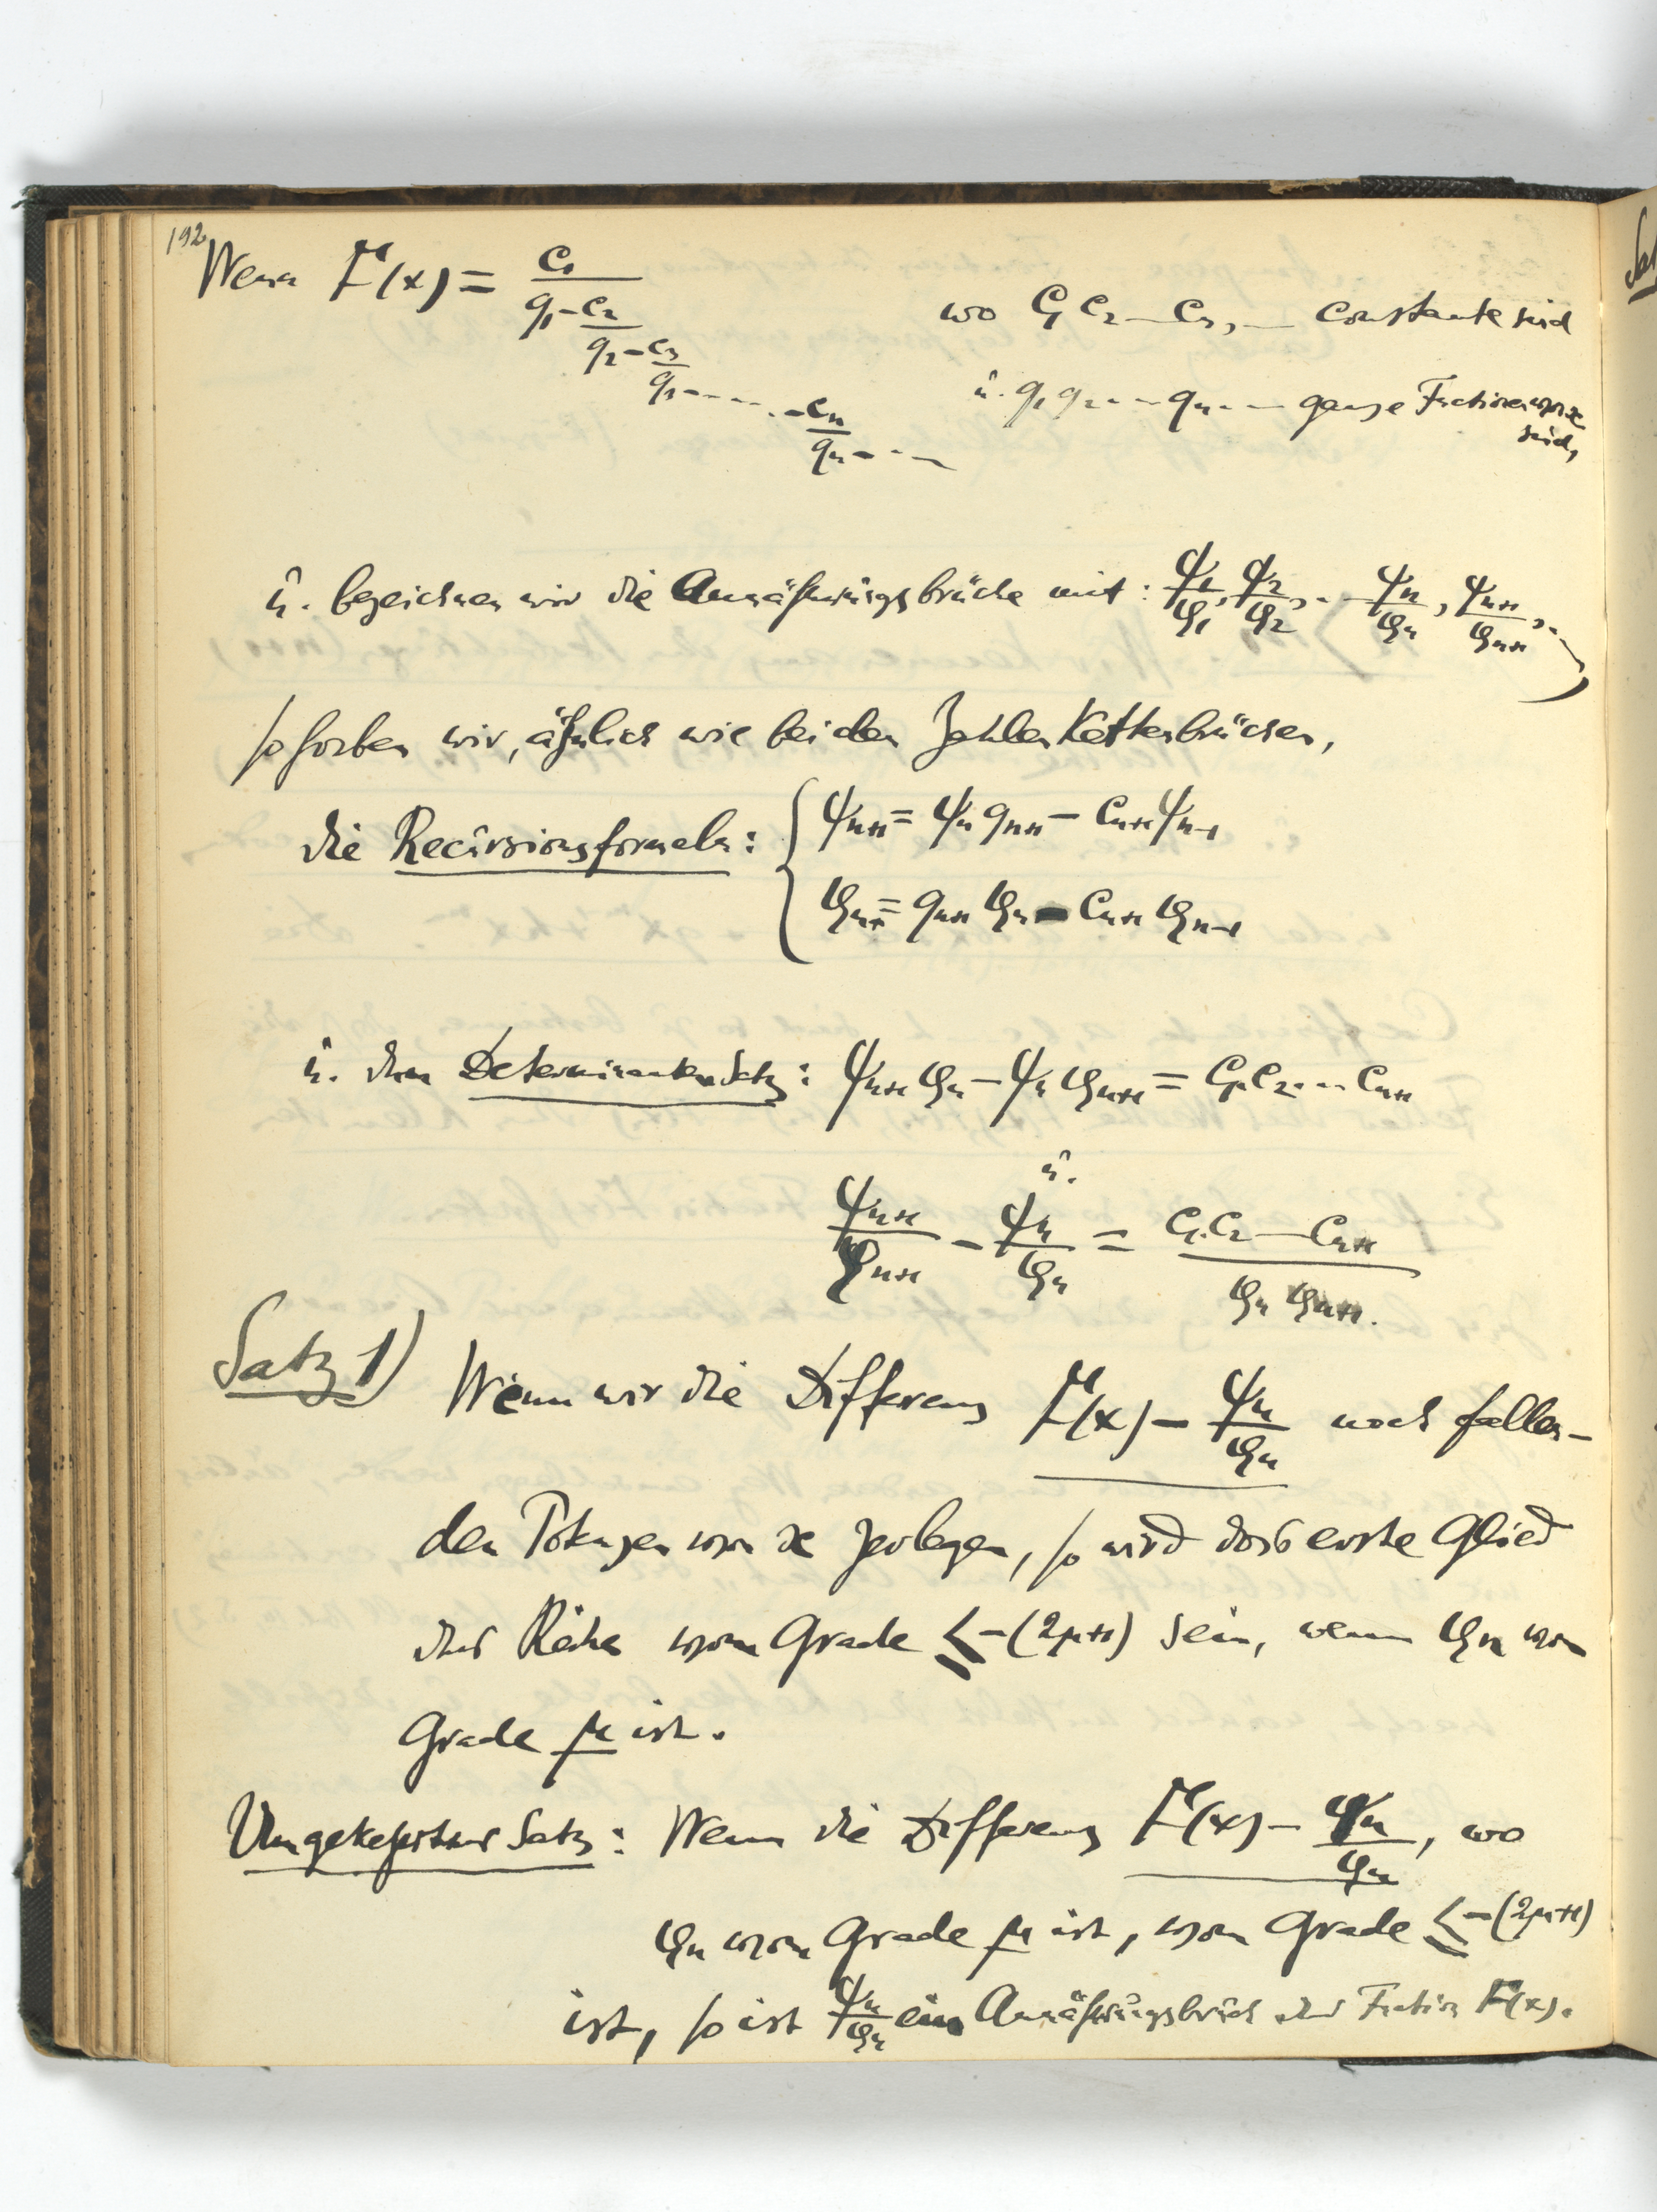 192
Wenn F(x) = c₁/(q₁ - c₂/(q₂ - c₃/(q₃ - .... - cₙ/(qₙ - ...
wo c₁ c₂ — cₙ, — constante sind
u. q₁ q₂ - - - qₙ - — ganze Functionen von x
sind,
u. bezeichnen wir die Annäherungsbrüche mit: ψ₁/φ₁, ψ₂/φ₂, . - ψₙ/φₙ, ψₙ₊₁/φₙ₊₁, . -
so haben wir, ähnlich wie bei den Zahlen Kettenbrüchen,
die Recursionsformeln: { ψₙ₊₁ = ψₙ qₙ₊₁ - cₙ₊₁ ψₙ₋₁
φₙ₊₁ = qₙ₊₁ φₙ - cₙ₊₁ φₙ₋₁
u. den Determinantensatz: ψₙ₊₁ φₙ - ψₙ φₙ₊₁ = c₁.c₂. - - cₙ₊₁
u.
ψₙ₊₁/φₙ₊₁ - ψₙ/φₙ = c₁.c₂ — cₙ₊₁ / φₙ φₙ₊₁.
Satz 1) Wenn wir die Differenz F(x) - ψₙ/φₙ nach fallen-
den Potenzen von x zerlegen, so wird das erste Glied
der Reihe vom Grade ≤ -(2μ+1) sein, wenn φₙ vom
Grade μ ist.
Umgekehrter Satz: Wenn die Differenz F(x) - ψₙ/φₙ, wo
φₙ vom Grade μ ist, vom Grade ≤ -(2μ+1)
ist, so ist ψₙ/φₙ ein Annäherungsbruch der Function F(x).